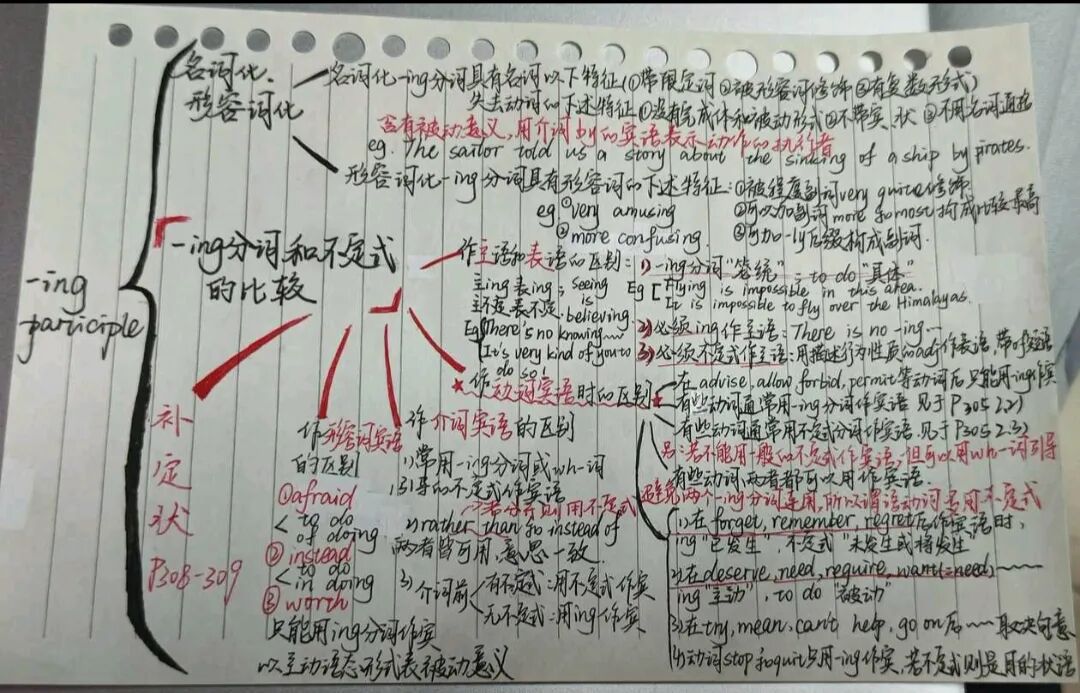 -ing participle
名词化、形容词化
名词化-ing分词具有名词以下特征(①带限定词②被形容词修饰③有复数形式)
失去动词的下述特征①没有完成体和被动形式②不带宾、状③不用名词通格
含有被动意义,用介词by的宾语表示动作的执行者
eg. The sailor told us a story about the sinking of a ship by pirates.
形容词化-ing分词具有形容词的下述特征:①被程度副词very quite修饰
eg. ①very amusing
②more confusing
②可以加副词more和most构成比较最高
③可加-ly后缀构成副词.
-ing分词和不定式的比较
作主语和表语的区别:1)-ing分词"笼统"; to do "具体"
主ing表ing; seeing is believing.
主不定表不定
Eg [Flying is impossible in this area.
It is impossible to fly over the Himalayas.
Eg There's no knowing~~
It's very kind of you to do so!
2)必须ing作主语: There is no -ing~
3)必须不定式作主语:用描述行为性质的adj作表语,带of短语
★作动词宾语时的区别★
在advise, allow, forbid, permit等动词后只能用ing作宾
有些动词通常用-ing分词作宾语 见于P305 2.2)
有些动词通常用不定式分词作宾语 见于P305 2.3)
另:若不能用一般的不定式作宾语,但可以用wh-词引导
有些动词,两者都可以用作宾语.
避免两个-ing分词连用,所以谓语动词为用不定式
1)在forget, remember, regret后作宾语时,
ing"已发生",不定式"未发生或将发生
2)在deserve, need, require, want(=need)~~
ing"主动", to do "被动"
3)在try, mean, can't help, go on后~~取决句意
4)动词stop和quit只用-ing作宾,若不定式则是目的状语
作介词宾语的区别
1)常用-ing分词或wh-词
引导的不定式作宾语
2)rather than和instead of
两者皆可用,意思一致.
3)介词前
有不定式:用不定式作宾
无不定式:用ing作宾
作形容词宾语
的区别
①afraid
to do
of doing
②instead
to do
in doing
③worth
只能用ing分词作宾
以主动语态形式表被动意义
补
定
状
P308-309